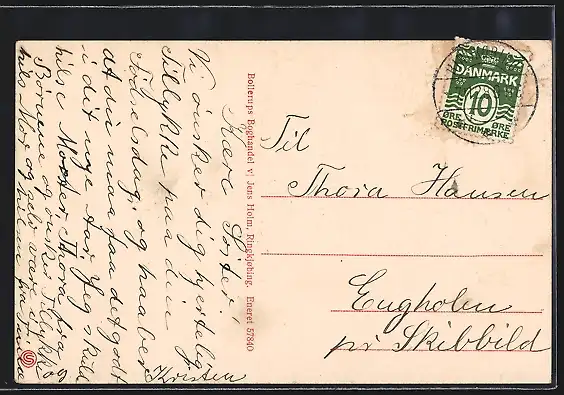 Kære Søster!
Vi ønsker dig hjertelig
Tillykke paa din
Fødselsdag, og haaber
at du maa faa det godt
i dit nye Aar. Jeg skuld
hilse Moster Thora fra
Børnene og ønske Tillykke
hils Mor og selv være
hilsen fra
Kristen
Bollerups Boghandel v/ Jens Holm, Ringkjøbing. Eneret 57840
Til
Thora Hansen
Engholm
pr Skibbild
DANMARK
10
ØRE ØRE
POSTFRIMÆRKE